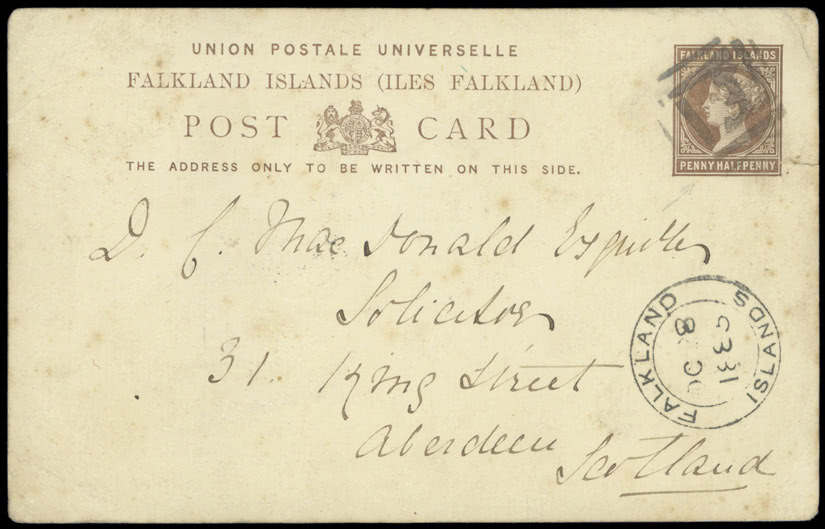 UNION POSTALE UNIVERSELLE
FALKLAND ISLANDS (ILES FALKLAND)
POST CARD
THE ADDRESS ONLY TO BE WRITTEN ON THIS SIDE.
FALKLAND ISLANDS
PENNY HALFPENNY
D. C. MacDonald
Solicitor
31. King Street
Aberdeen
Scotland
FALKLAND ISLANDS